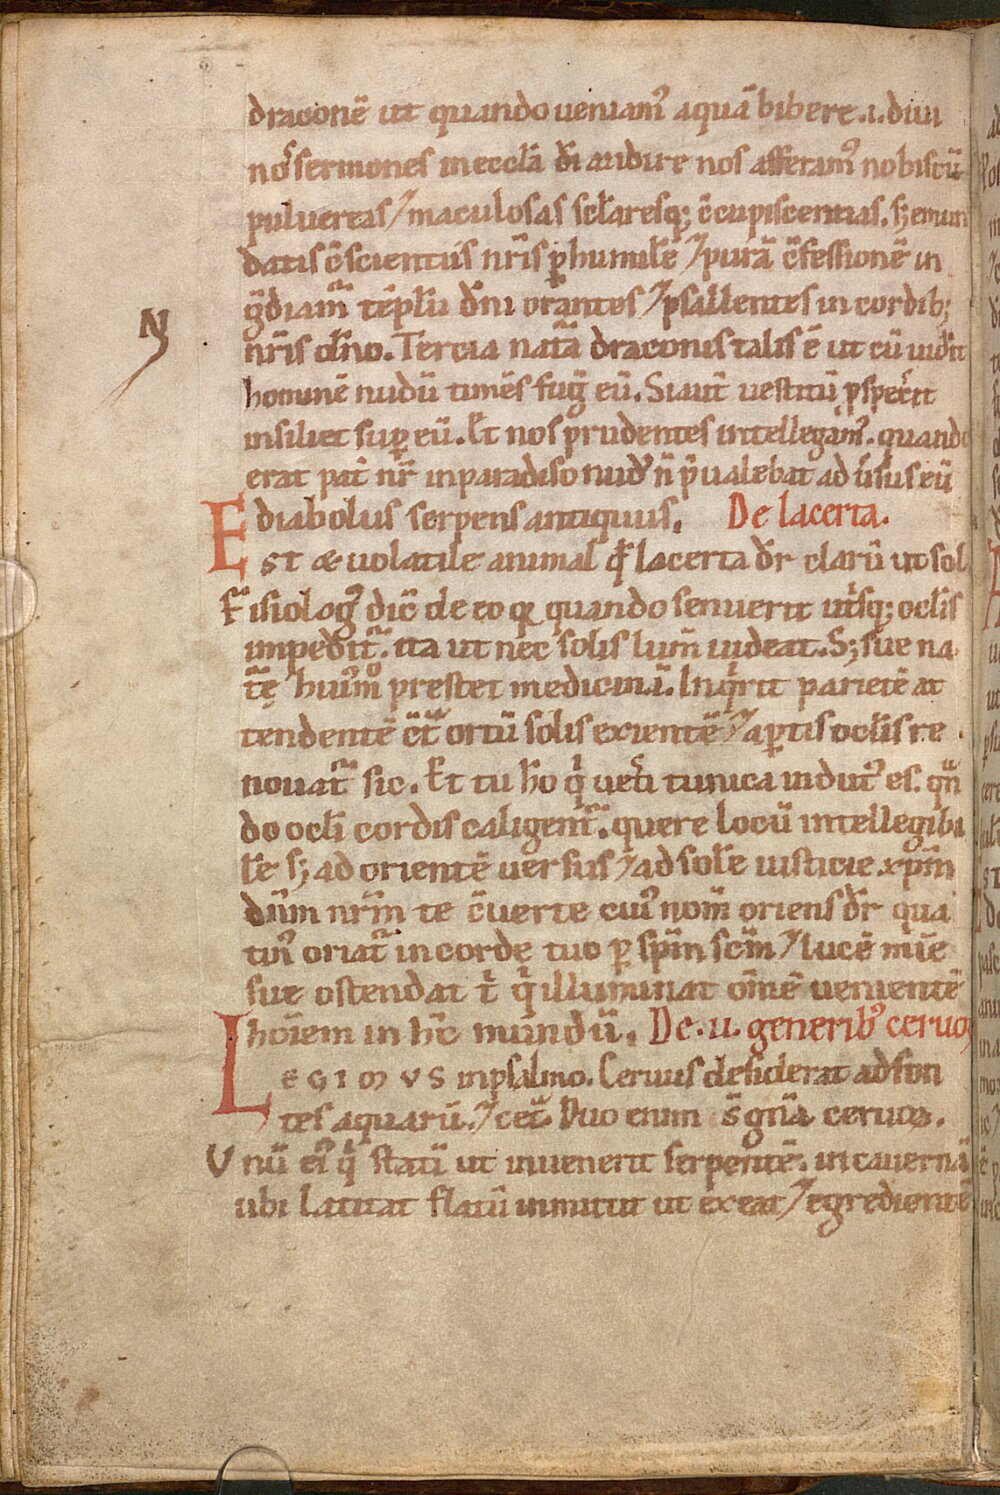 draconē ut quando ueniam᷒ aquā bibere .i. diui
nos sermones in eccl̄a dī audire nos afferam᷒ nobiscū
puluereas ⁊ maculosas sc̄laresq; ↄ̄cupiscentias. s; emun
datis c̄scientiis nr̄is p̱ humilē ⁊ purā c̄fessionē in
tēplū dn̄i orantes ⁊ psallentes in cordib;
nr̄is dn̄o. Tercia nat̄a draconis talis ē ut cū uid͛it
hominē nudū timēs fuḡ eū. Si aut̄ uestitū pspex͛it
insiliet sup̱ eū. Et nos prudentes intellegam᷒. quando
erat pat̄ nr̄ in paradiso nud᷒ n̄ p̄ualebat ad ūsus eū
diabolus serpens antiquus. De lacerta.
Est & uolatile animal qđ lacerta dr̄ clarū ut sol
Fisiolog᷒ dic̄ de eo qꝛ quando senuerit ut͛sq; oclīs
impedit̄. ita ut nec solis lum̄ uideat. S; sue na
t̄ę hui᷒m̊ prestet medicinā. Inqͥrit parietē at
tendentē c̄t̄ ortū solis exientē ⁊ ap̱tis oclīs re
nouat̄ sic. Et tu ho qͥ uet͛i tunica indut᷒ es. qn̄
do oclī cordis caligent̄. quere locū intellegiba
le s; ad orientē uersus ⁊ ad sole iusticie xp̄m
dn̄m nr̄m te c̄uerte cui᷒ nom̄ oriens dr̄ qua
tin᷒ oriat̄ in corde tuo p̱ sp̄m sc̄m ⁊ lucē mīe
sue ostendat t͛ qͥ illuminat om̄ē uenientē
hōiem in hc̄ mundū. De .ii. generib᷒ ceruoꝝ
Legimus in psalmo. Ceruus desiderat ad fon
tes aquarū. ⁊ cet̄. Duo enim s̄ gn̄a ceruoꝝ.
Vnū ei᷒ qͥ statī ut inuenerit serpentē. in cauernā
ubi latitat flatū inmittit ut exeat ⁊ egredientē
N